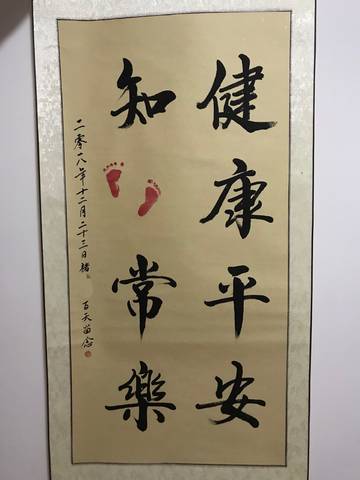 健康平安
知常樂
二零一八年十二月二十三日
百天留念